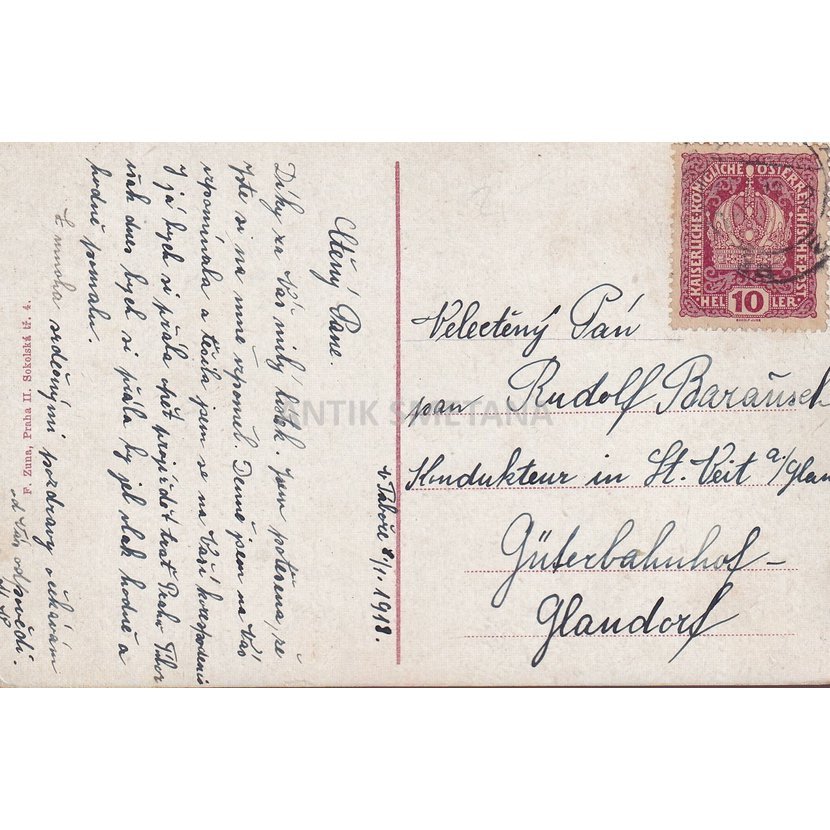 Ctěný Pane.
Díky za Váš milý lístek. Jsem potěšena, že
jste si na mne vzpomul. Denně jsem na Vás
vzpomínala a těšila jsem se na Vaší korespondenci
I já bych si přála opět projíždět trať Praha Tábor
však dnes bych si přála by jel vlak hodně a
hodně pomalu.
S mnoha srdečnými pozdravy očekávám
od Vás odpovědi.
v Táboře 8/1. 1918.
F. Žuna, Praha II. Sokolská tř. 4.
KAISERLICHE KÖNIGLICHE ÖSTERREICHISCHE POST
HEL 10 LER
Velectěný Pán
pan Rudolf Barausch
Kondukteur in St. Veit a/Glan
Güterbahnhof-
Glandorf
ANTIK SMETANA